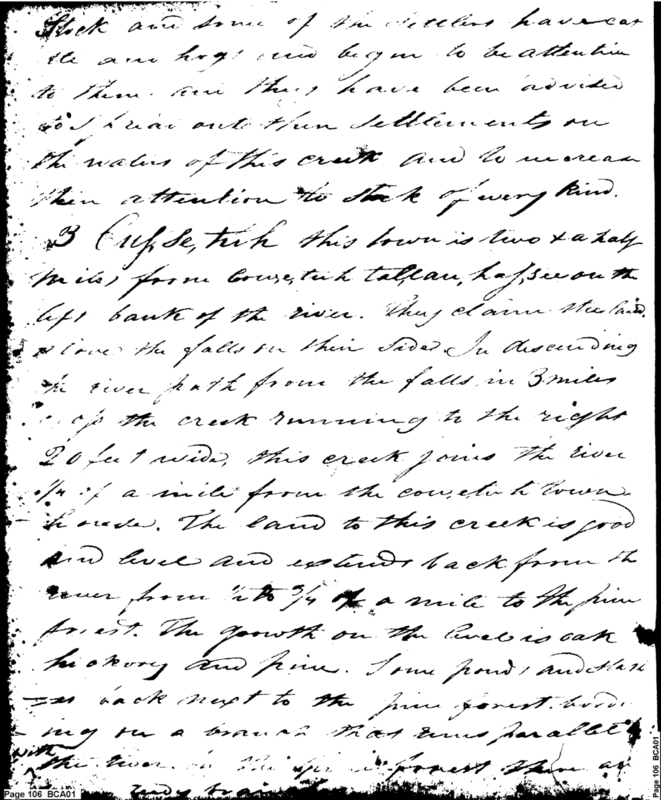 Stock and some of the settlers have cat
tle and hogs and begin to be attentive
to them. and they have been advised
to spread out their settlements on
the waters of this creek and to increase
their attention to stock of every kind.
3 Cus,se,tuh this town is two & a half
miles from Cow,e,tuh tal,lau,has,see on the
left bank of the river. They claim the land
above the falls on their side. In descending
the river path from the falls in 3 miles
the creek running to the right
20 feet wide, this creek joins the river
of a mile from the cow,e,tuh town
house. The land to this creek is good
and level and extends back from the
river from 1/2 to 3/4 of a mile to the pine
forest. The growth on the level is oak
hickory and pine. Some ponds and slash
es back next to the pine forest. bord
ing on a branch that runs parallel
with the river. in the pine forest there
Page 106 BCA01
Page 106 BCA01